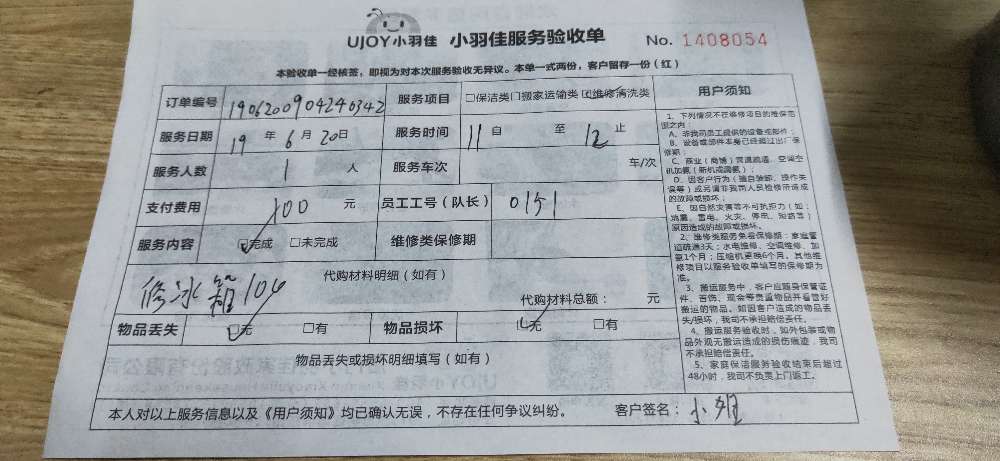 UJOY小羽佳 小羽佳服务验收单 No. 1408054
本验收单一经核签，即视为对本次服务验收无异议。本单一式两份，客户留存一份（红）
订单编号 1906200904240342 服务项目 □保洁类 □搬家运输类 ☑维修清洗类
服务日期 19 年 6 月 20 日 服务时间 11 自 至 12 止
服务人数 1 人 服务车次 车/次
支付费用 100 元 员工工号（队长） 0151
服务内容 ☑完成 □未完成 维修类保修期
代购材料明细（如有）
修冰箱100
代购材料总额： 元
物品丢失 ☑无 □有 物品损坏 ☑无 □有
物品丢失或损坏明细填写（如有）
本人对以上服务信息以及《用户须知》均已确认无误，不存在任何争议纠纷。 客户签名：小姐
用户须知
1、下列情况不在维修项目的维保范
围之内：
A、非我司员工提供的设备或部件；
B、设备或部件本身已经超过出厂保
修期；
C、商业（商铺）管道疏通、空调空
机加氨（新机或漏氨）；
D、因客户行为（擅自装卸、操作失
误等）或另请非我司人员检修带造成
的故障或损坏；
E、因自然灾害等不可抗拒力（如：
地震、雷电、火灾、停电、短路等）
原因造成的故障或损坏。
2、维修类服务免费保修期：家庭管
道疏通3天；水电维修、空调维修、加
氨1个月；压缩机更换6个月。其他维
修项目以服务验收单填写的保修期为
准。
3、搬运服务中，客户应随身保管证
件、首饰、现金等贵重物品并看管好
搬运的物品。如因客户造成的物品丢
失/损坏，我司不承担赔偿责任。
4、搬运服务验收时，如外包装或物
品外观无搬运造成的损伤痕迹，我司
不承担赔偿责任。
5、家庭保洁服务验收结束后超过
48小时，我司不负责上门返工。